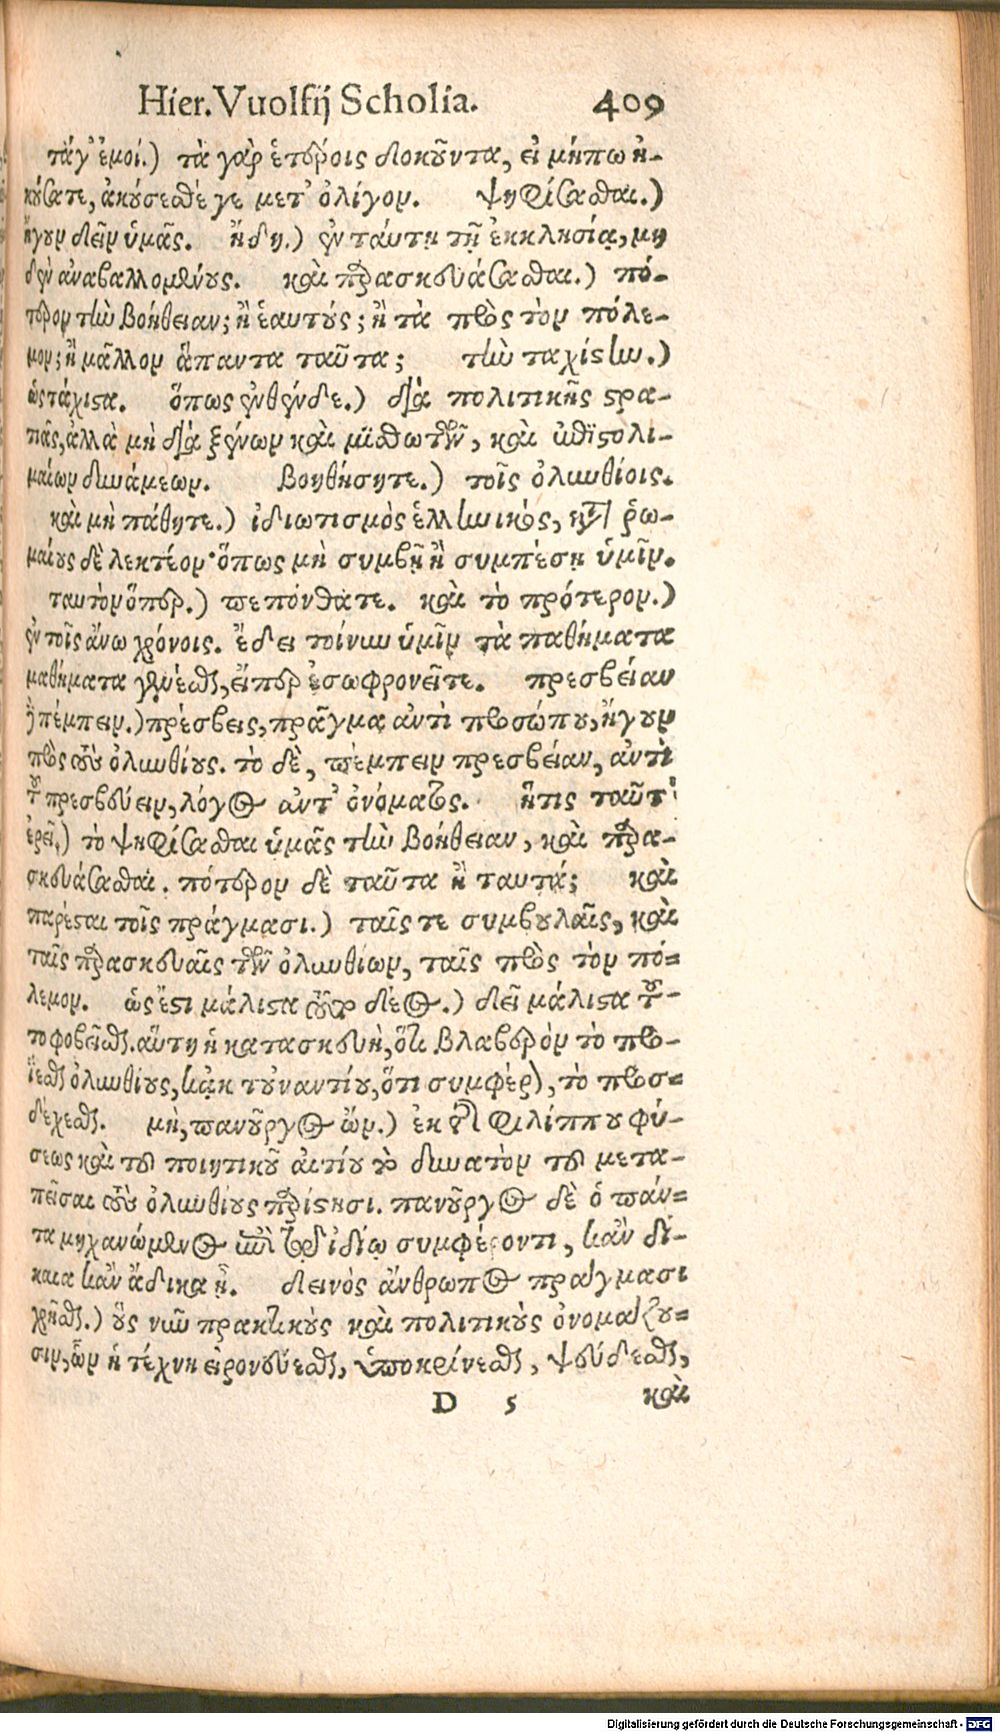 Hier. Vuolfij Scholia. 409
τάγ' ἐμοί.) τὰ γὰρ ἑτέροις δοκοῦντα, εἰ μήπω ἠ-
κούσατε, ἀκούσεσθέ γε μετ' ὀλίγον. ψηφίσασθαι.)
ἤγουν δεῖν ὑμᾶς. ἤδη.) ἐν ταύτῃ τῇ ἐκκλησίᾳ, μη
δὲν ἀναβαλλομένους. καὶ παρασκευάσασθαι.) πό-
τερον τὴν βοήθειαν; ἢ ἑαυτούς; ἢ τὰ πρὸς τὸν πόλε-
μον; ἢ μᾶλλον ἅπαντα ταῦτα; τὴν ταχίστην.)
ὡς τάχιστα. ὅπως ἐνθένδε.) διὰ πολιτικῆς στρα-
τιᾶς, ἀλλὰ μὴ διὰ ξένων καὶ μισθωτῶν, καὶ ἐπιστολι-
μαίων δυνάμεων. βοηθήσητε.) τοῖς ὀλυνθίοις.
καὶ μὴ πάθητε.) ἰδιωτισμὸς ἑλληνικός, κατὰ ῥω-
μαίους δὲ λεκτέον· ὅπως μὴ συμβῇ ἢ συμπέσῃ ὑμῖν.
ταυτὸν ὅπερ.) πεπόνθατε. καὶ τὸ πρότερον.)
ἐν τοῖς ἄνω χρόνοις. ἔδει τοίνυν ὑμῖν τὰ παθήματα
μαθήματα γενέσθαι, εἴπερ ἐσωφρονεῖτε. πρεσβείαν
πέμπειν.) πρέσβεις, πρᾶγμα ἀντὶ προσώπου, ἤγουν
πρὸς τοὺς ὀλυνθίους. τὸ δὲ, πέμπειν πρεσβείαν, ἀντὶ
τοῦ πρεσβεύειν, λόγος ἀντ' ὀνόματος. ἥτις ταῦτ'
ἐρεῖ.) τὸ ψηφίσασθαι ὑμᾶς τὴν βοήθειαν, καὶ παρα-
σκευάσασθαι. πότερον δὲ ταῦτα ἢ ταυτά; καὶ
παρέσται τοῖς πράγμασι.) ταῖς τε συμβουλαῖς, καὶ
ταῖς παρασκευαῖς τῶν ὀλυνθίων, ταῖς πρὸς τὸν πό=
λεμον. ὡς ἔστι μάλιστα τοῦτο δέος.) δεῖ μάλιστα τοῦ-
το φοβεῖσθαι. αὕτη ἡ κατασκευὴ, ὅτι βλαβερὸν τὸ προ-
ΐεσθαι ὀλυνθίους, κἀκ τοὐναντίου, ὅτι συμφέρει, τὸ προσ=
δέχεσθαι. μὴ, πανοῦργος ὤν.) ἐκ τῆς φιλίππου φύ-
σεως καὶ τοῦ ποιητικοῦ αἰτίου τὸ δυνατὸν τοῦ μετα-
πεῖσαι τοὺς ὀλυνθίους παρίστησι. πανοῦργος δὲ ὁ πάν=
τα μηχανώμενος ἐπὶ τῷ ἰδίῳ συμφέροντι, κἂν δί-
καια κἂν ἄδικα ᾖ. δεινὸς ἄνθρωπος πράγμασι
χρῆσθαι.) οὓς νῦν πρακτικοὺς καὶ πολιτικοὺς ὀνομάζου=
σιν, ὧν ἡ τέχνη εἰρονεύεσθαι, ὑποκρίνεσθαι, ψεύδεσθαι,
D 5 καὶ
Digitalisierung gefördert durch die Deutsche Forschungsgemeinschaft - DFG